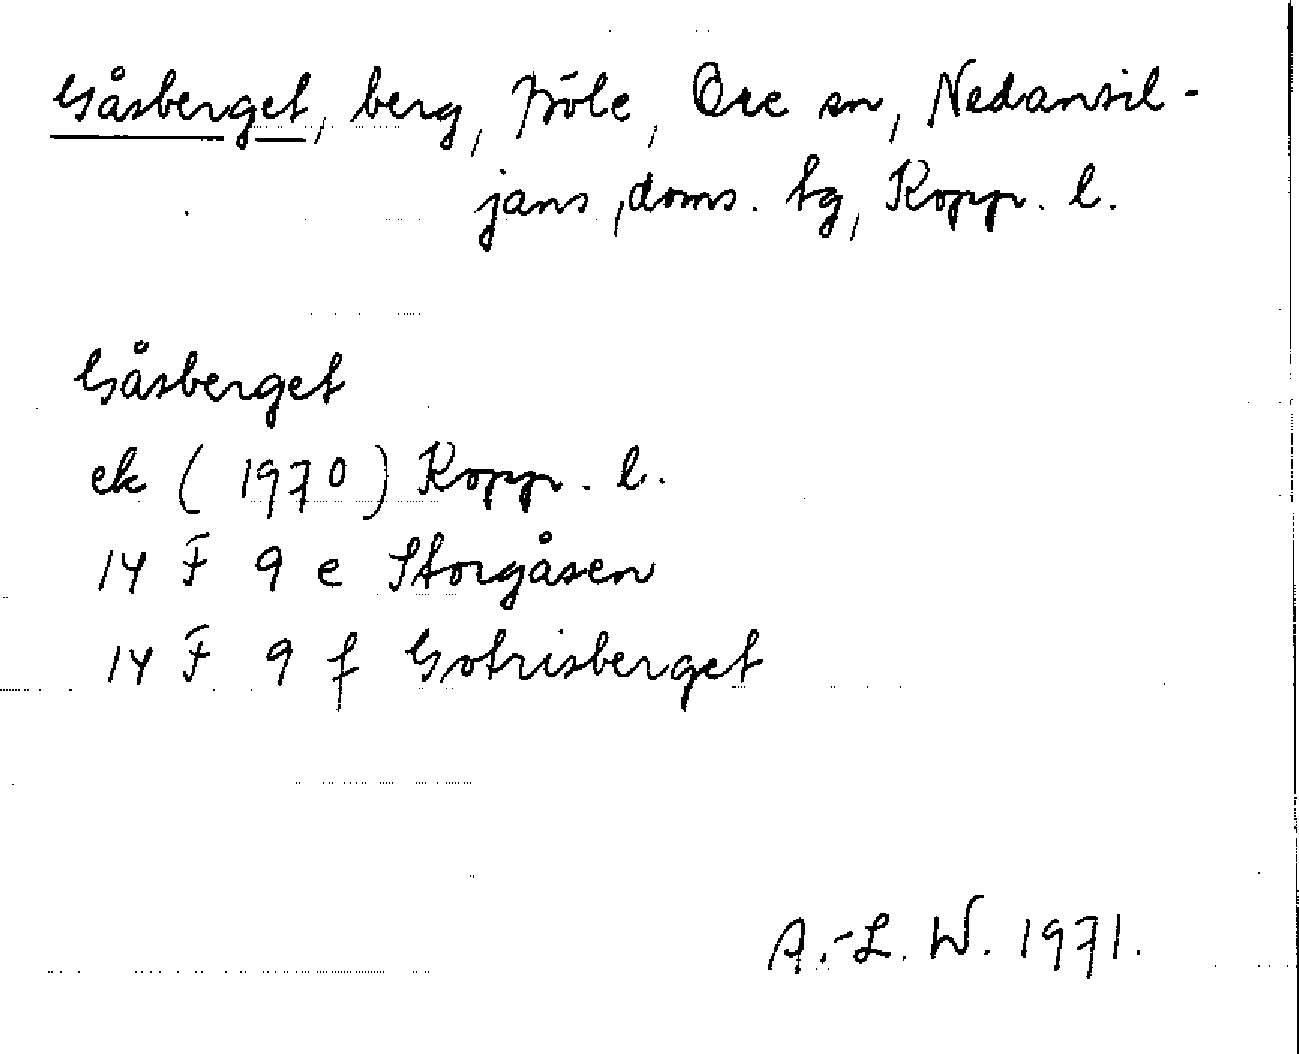 Gåsberget, berg, Böle, Ore sn, Nedansil-
jans, doms. tg, Kopp. l.
Gåsberget
ek (1970) Kopp. l.
14 F 9 e Storgåsen
14 F 9 f Gotrisberget
A.-L. W. 1971.